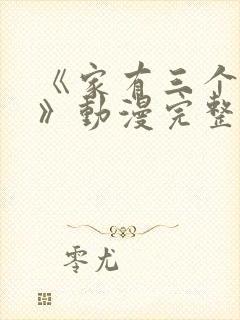 《家有三个
》動漫完整
零尤